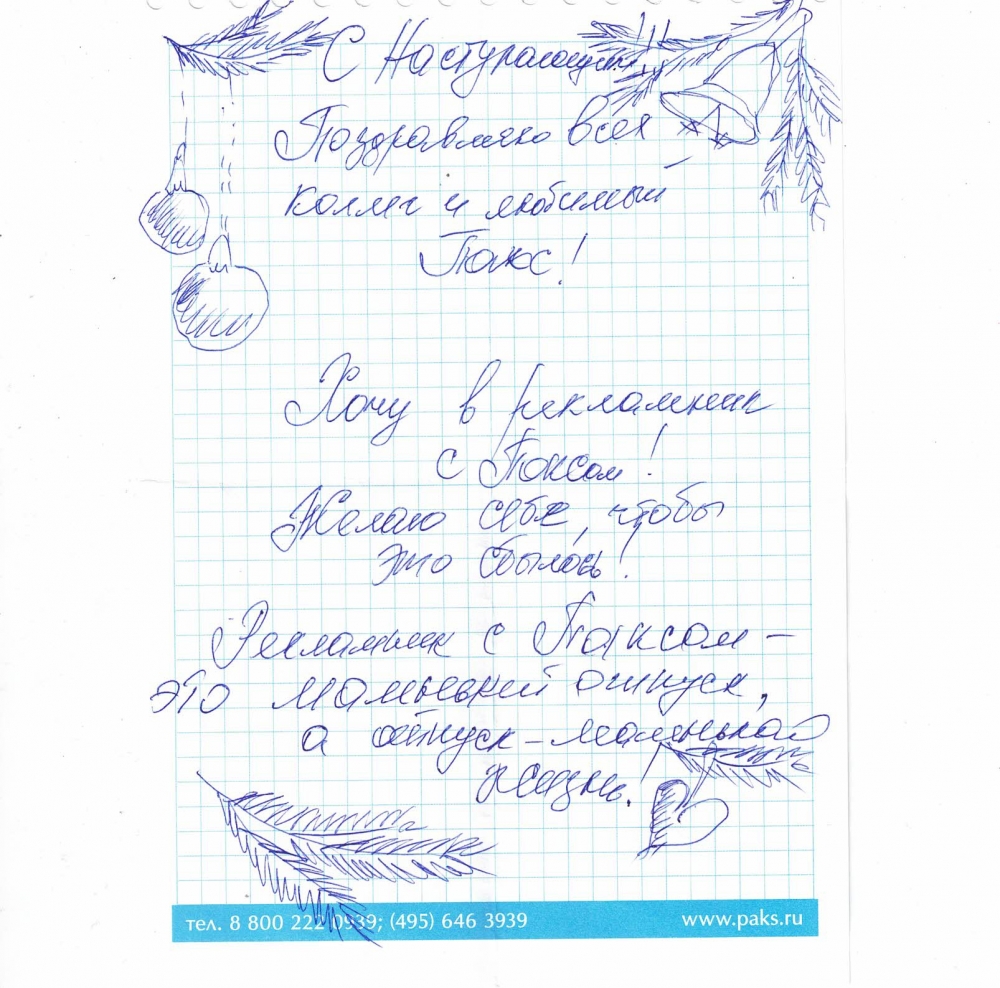 С Наступающим
Поздравляю всех
коллег и любимый
Пакс!
Хочу в рекламник
с Паксом!
Желаю себе, чтобы
это сбылось!
Рекламник с Паксом –
это маленький отпуск,
а отпуск – маленькая
жизнь!
тел. 8 800 222 0939; (495) 646 3939
www.paks.ru